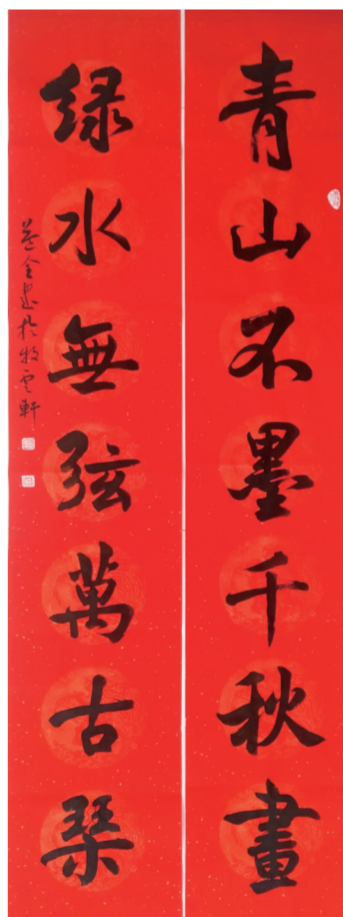 青山不墨千秋畫
绿水無弦萬古琴
金書於牧雲軒